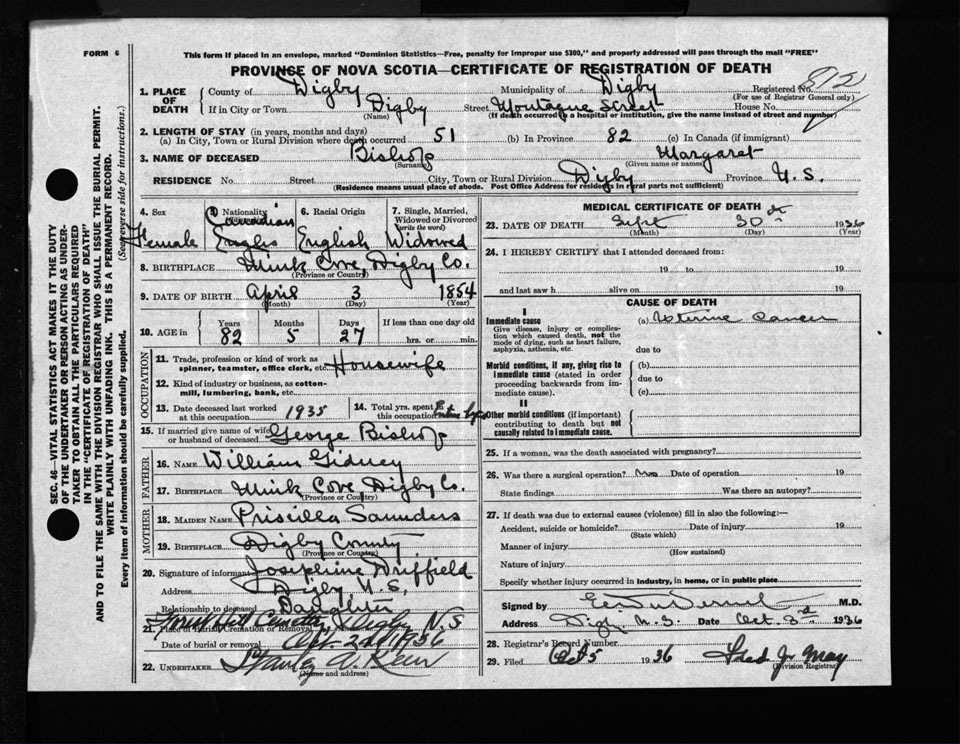 FORM 6
This form if placed in an envelope, marked "Dominion Statistics—Free, penalty for improper use $300," and properly addressed will pass through the mail "FREE"
PROVINCE OF NOVA SCOTIA—CERTIFICATE OF REGISTRATION OF DEATH
1. PLACE OF DEATH
County of Digby Municipality of Digby Registered No. 812
(For use of Registrar General only)
If in City or Town Digby Street Montague Street House No.
(Name) (If death occurred in a hospital or institution, give the name instead of street and number)
2. LENGTH OF STAY (in years, months and days)
(a) In City, Town or Rural Division where death occurred 51 (b) In Province 82 (c) In Canada (if immigrant)
3. NAME OF DECEASED Bishop Margaret
(Surname) (Given name or names)
RESIDENCE No. Street City, Town or Rural Division Digby Province N.S.
(Residence means usual place of abode. Post Office Address for residents in rural parts not sufficient)
4. Sex Female
5. Nationality Canadian
6. Racial Origin English
7. Single, Married, Widowed or Divorced (write the word) Widowed
8. BIRTHPLACE Mink Cove, Digby Co.
(Province or Country)
9. DATE OF BIRTH April 3 1854
(Month) (Day) (Year)
10. AGE in Years Months Days If less than one day old
82 5 27 hrs. or min.
OCCUPATION
11. Trade, profession or kind of work as spinner, teamster, office clerk, etc. Housewife
12. Kind of industry or business, as cotton-mill, lumbering, bank, etc.
13. Date deceased last worked at this occupation 1935
14. Total yrs. spent in this occupation
15. If married give name of wife or husband of deceased George Bishop
FATHER
16. NAME William Gidney
17. BIRTHPLACE Mink Cove Digby Co.
(Province or Country)
MOTHER
18. MAIDEN NAME Priscilla Saunders
19. BIRTHPLACE Digby County
(Province or Country)
20. Signature of informant Josephine Driffield
Address Digby N.S.
Relationship to deceased Daughter
21. Place of Burial, Cremation or Removal Forest Hill Cemetery Digby N.S.
Date of burial or removal Oct. 2nd 1936
22. UNDERTAKER Stanley A.
(Name and address)
MEDICAL CERTIFICATE OF DEATH
23. DATE OF DEATH Sept 30th 1936
(Month) (Day) (Year)
24. I HEREBY CERTIFY that I attended deceased from:
19 to 19
and last saw h alive on 19
CAUSE OF DEATH
I
Immediate cause (a) Uterine Cancer
Give disease, injury or complication which caused death, not the mode of dying, such as heart failure, asphyxia, asthenia, etc.
due to
Morbid conditions, if any, giving rise to immediate cause (stated in order proceeding backwards from immediate cause).
(b)
due to
(c)
II
Other morbid conditions (if important) contributing to death but not causally related to immediate cause.
25. If a woman, was the death associated with pregnancy?
26. Was there a surgical operation? No Date of operation 19
State findings Was there an autopsy?
27. If death was due to external causes (violence) fill in also the following:—
Accident, suicide or homicide? Date of injury 19
(State which)
Manner of injury
(How sustained)
Nature of injury
Specify whether injury occurred in industry, in home, or in public place
Signed by M.D.
Address Digby N.S. Oct. 3rd 1936
28. Registrar's Record Number
29. Filed Oct 5 1936 Fred J. May
(Division Registrar)
SEC. 46—VITAL STATISTICS ACT MAKES IT THE DUTY
OF THE UNDERTAKER OR PERSON ACTING AS UNDER-
TAKER TO OBTAIN ALL THE PARTICULARS REQUIRED
IN THE "CERTIFICATE OF REGISTRATION OF DEATH"
AND TO FILE THE SAME WITH THE DIVISION REGISTRAR WHO SHALL ISSUE THE BURIAL PERMIT.
WRITE PLAINLY WITH UNFADING INK. THIS IS A PERMANENT RECORD.
Every item of information should be carefully supplied. (See reverse side for instructions.)